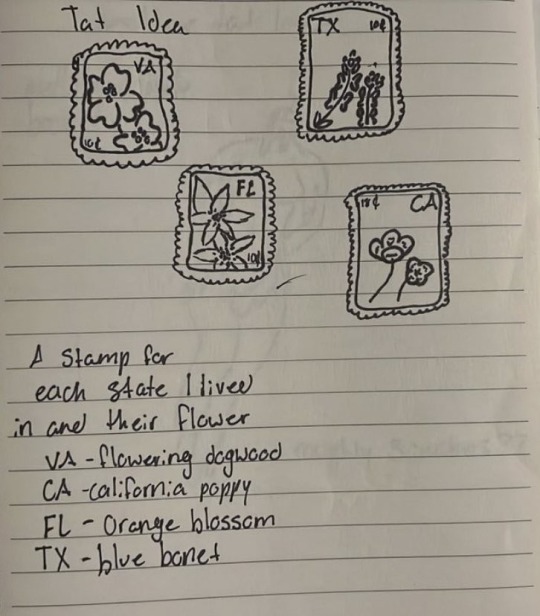 Tat Idea
TX 10¢
VA
10¢
FL
10¢
18¢ CA
A stamp for
each state I lived
in and their flower
VA - flowering dogwood
CA - california poppy
FL - Orange blossom
TX - blue bonet